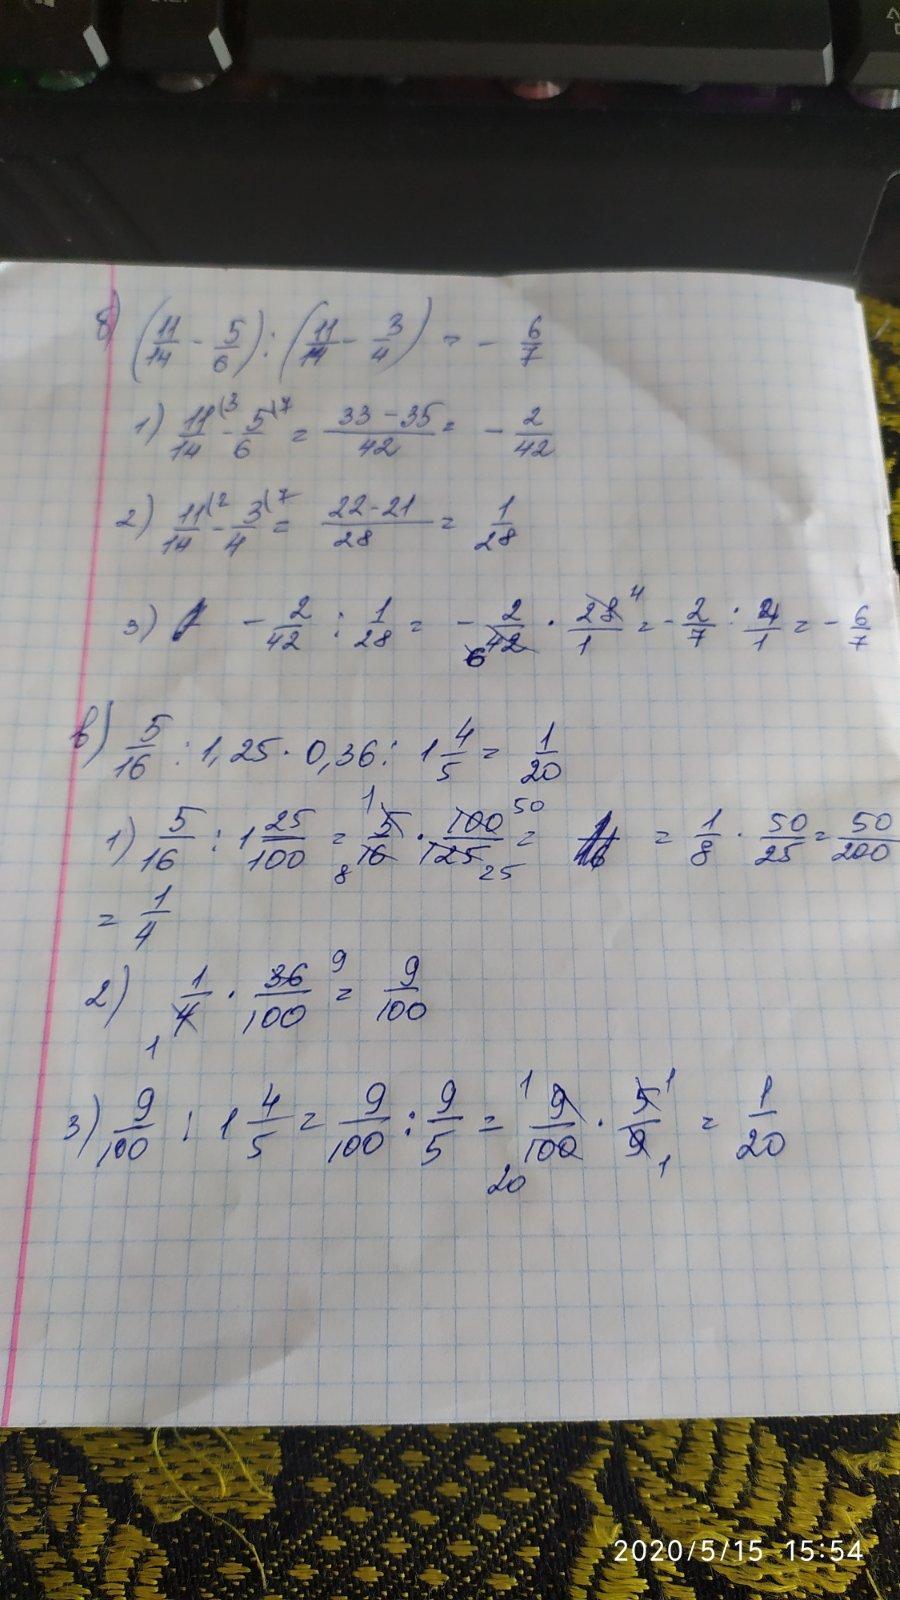 б) (11/14 - 5/6) : (11/14 - 3/4) = - 6/7
1) 11/14 (3 - 5/6 (7 = 33-35/42 = - 2/42
2) 11/14 (2 - 3/4 (7 = 22-21/28 = 1/28
3) - 2/42 : 1/28 = - 2/42 6 · 28/1 4 = - 2/7 : 4/1 = - 6/7
в) 5/16 : 1,25 · 0,36 : 1 4/5 = 1/20
1) 5/16 : 1 25/100 = 1 5/16 8 · 100/125 50 25 = = 1/8 · 50/25 = 50/200
= 1/4
2) 1/4 1 · 36/100 9 = 9/100
3) 9/100 : 1 4/5 = 9/100 : 9/5 = 1 9/100 20 · 5/9 1 1 = 1/20
2020/5/15 15:54